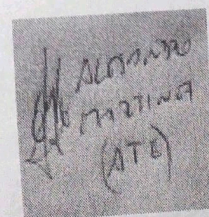 ALESSANDRO
MARTINA
(ATE)